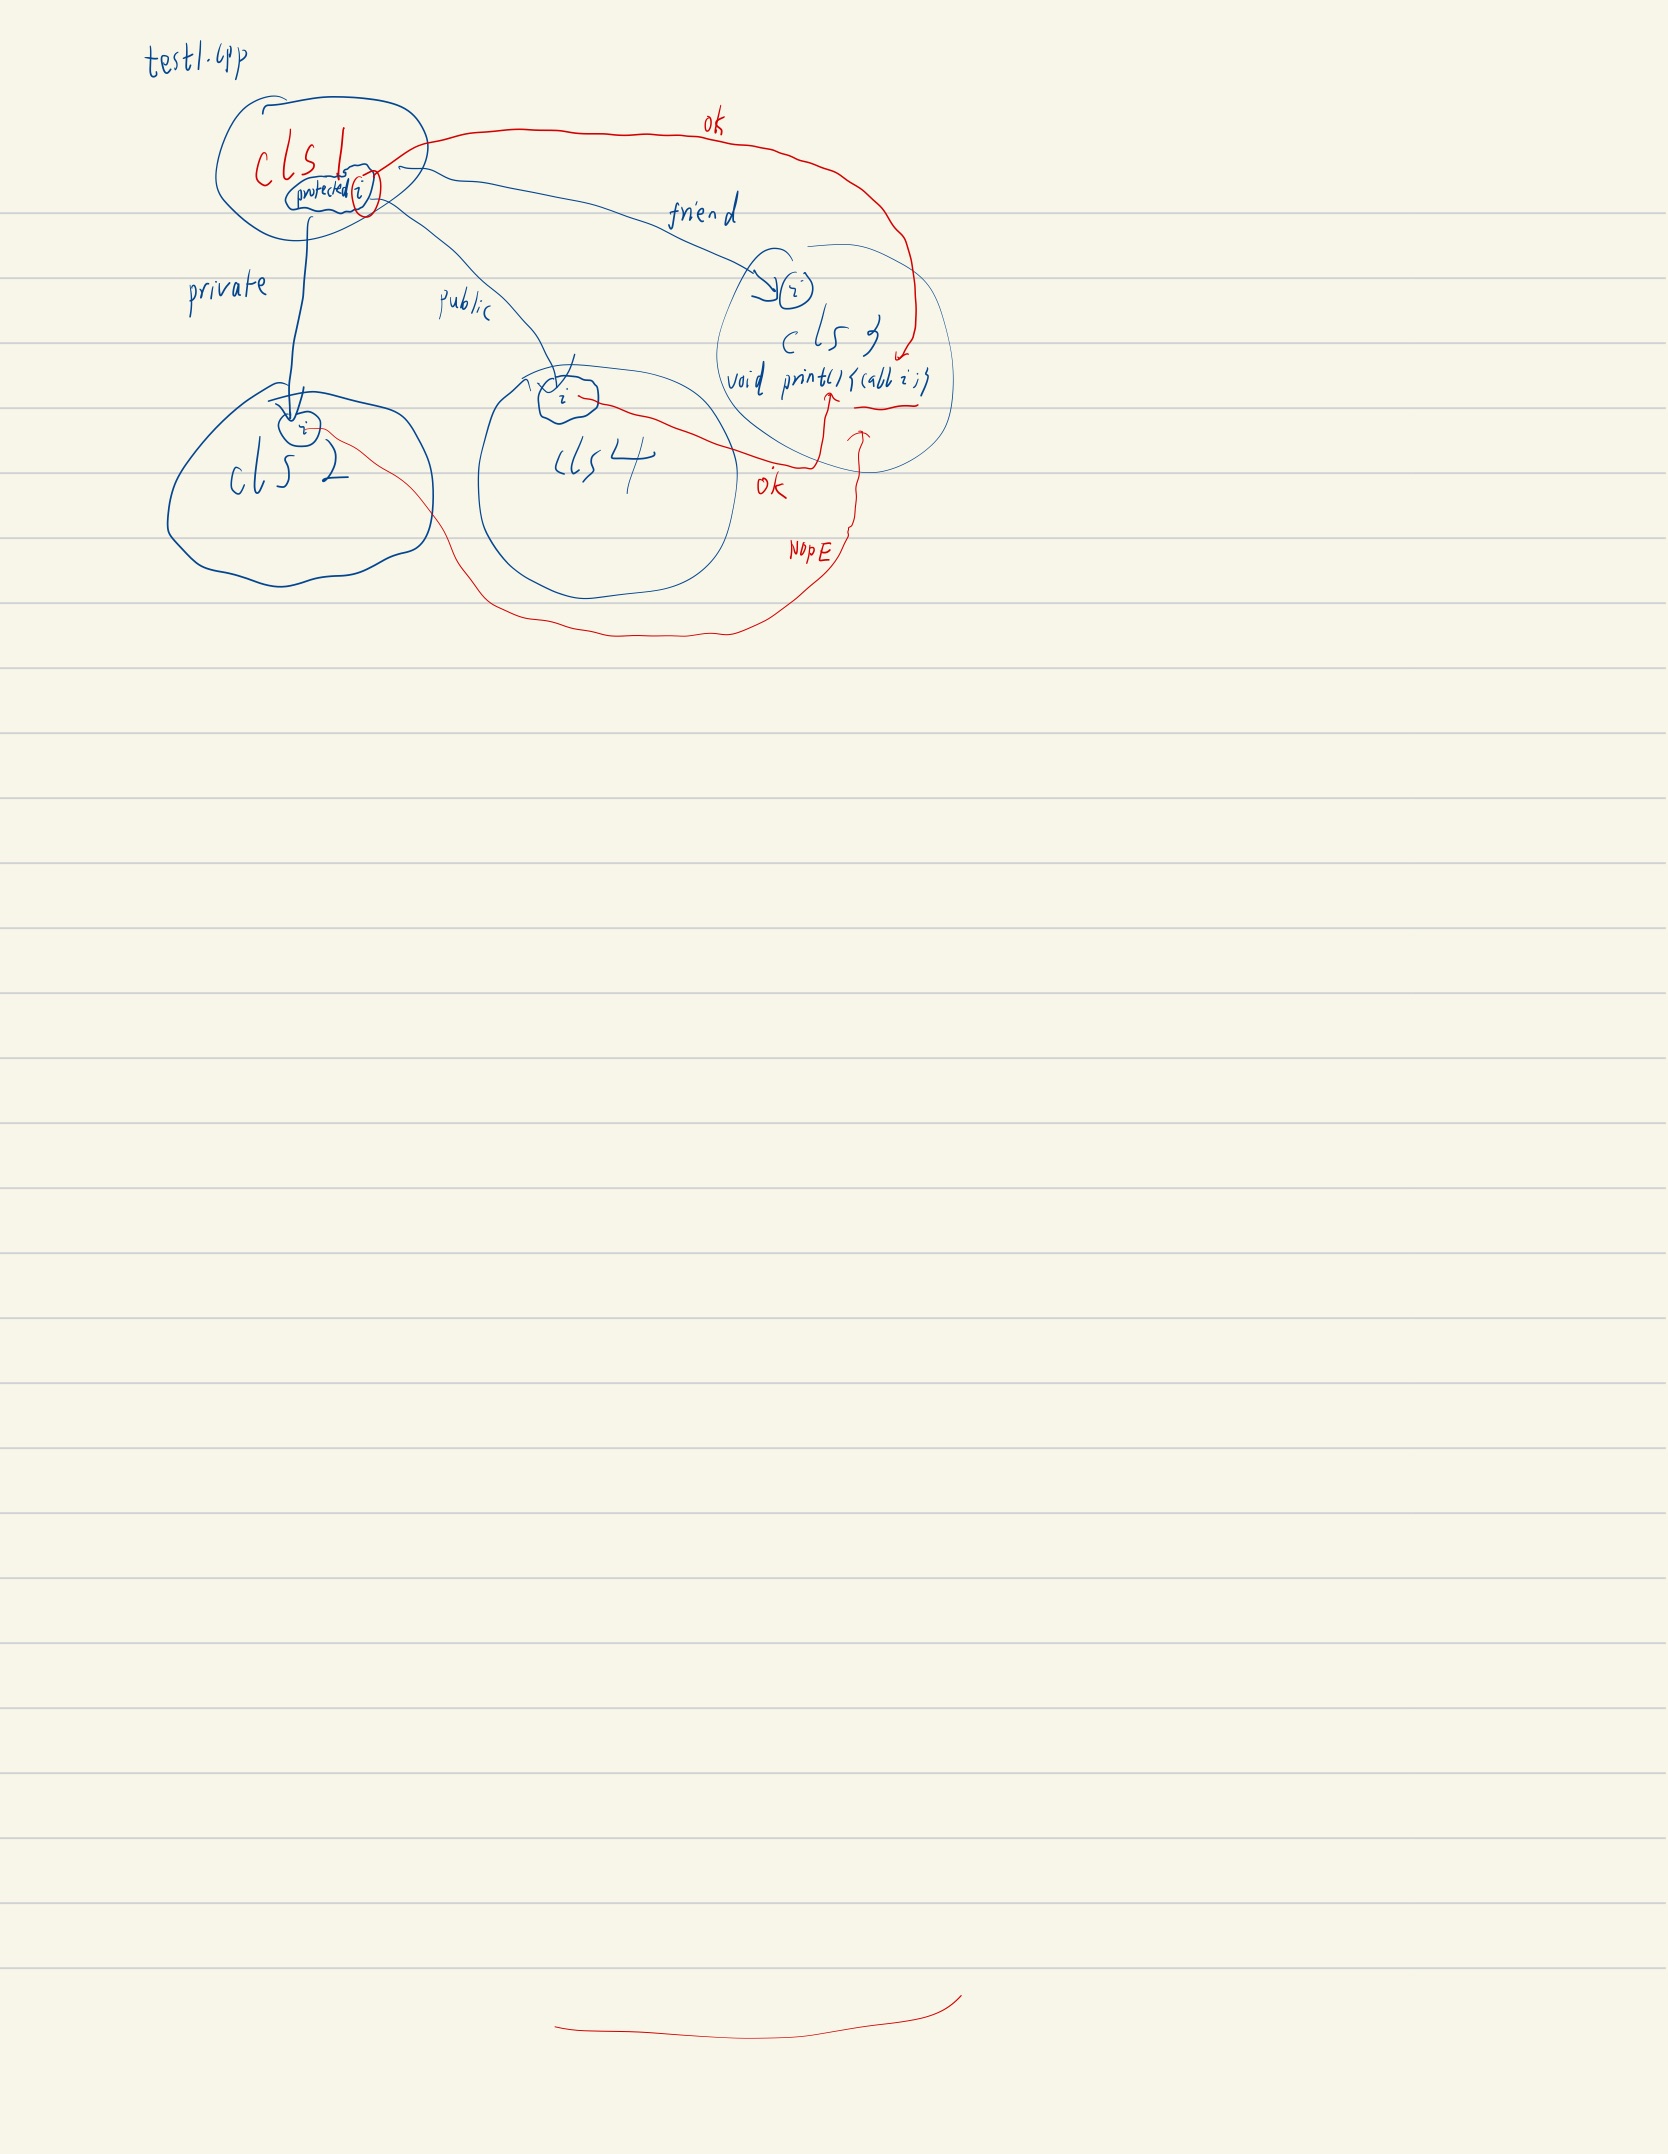 test1.cpp
cls 1
protected i
ok
friend
private
public
i
cls 3
void print(){call i;}
i
cls 4
i
cls 2
ok
NOPE